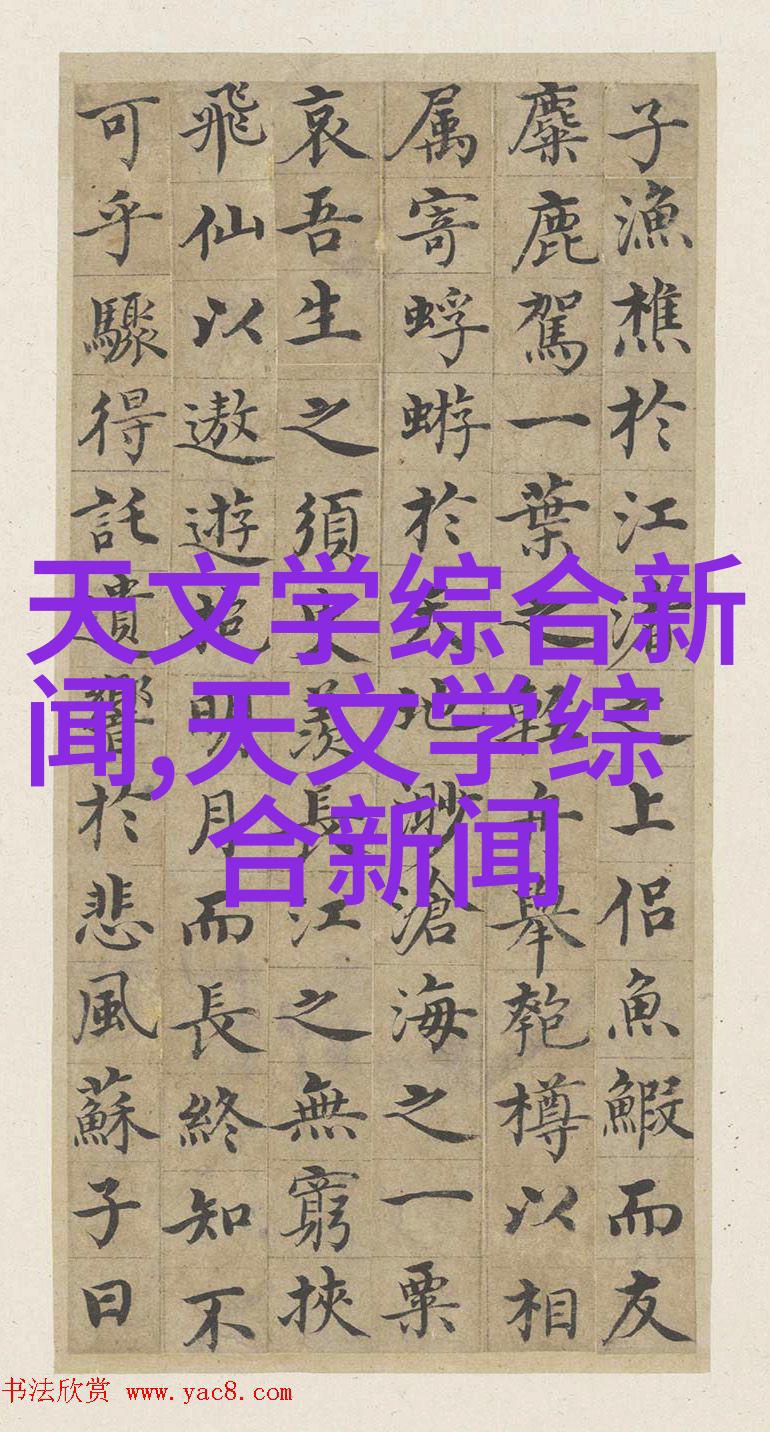 子漁樵於江渚之上侣魚鰕而友
麋鹿駕一葉之輕舟舉匏樽以相
属寄蜉蝣於天地渺滄海之一粟
哀吾生之須臾羨長江之無窮挾
飛仙以遨遊抱明月而長終知不
可乎驟得託遺響於悲風蘇子曰
天文学综合新
闻,天文学综
合新闻
书法欣赏 www.yac8.com